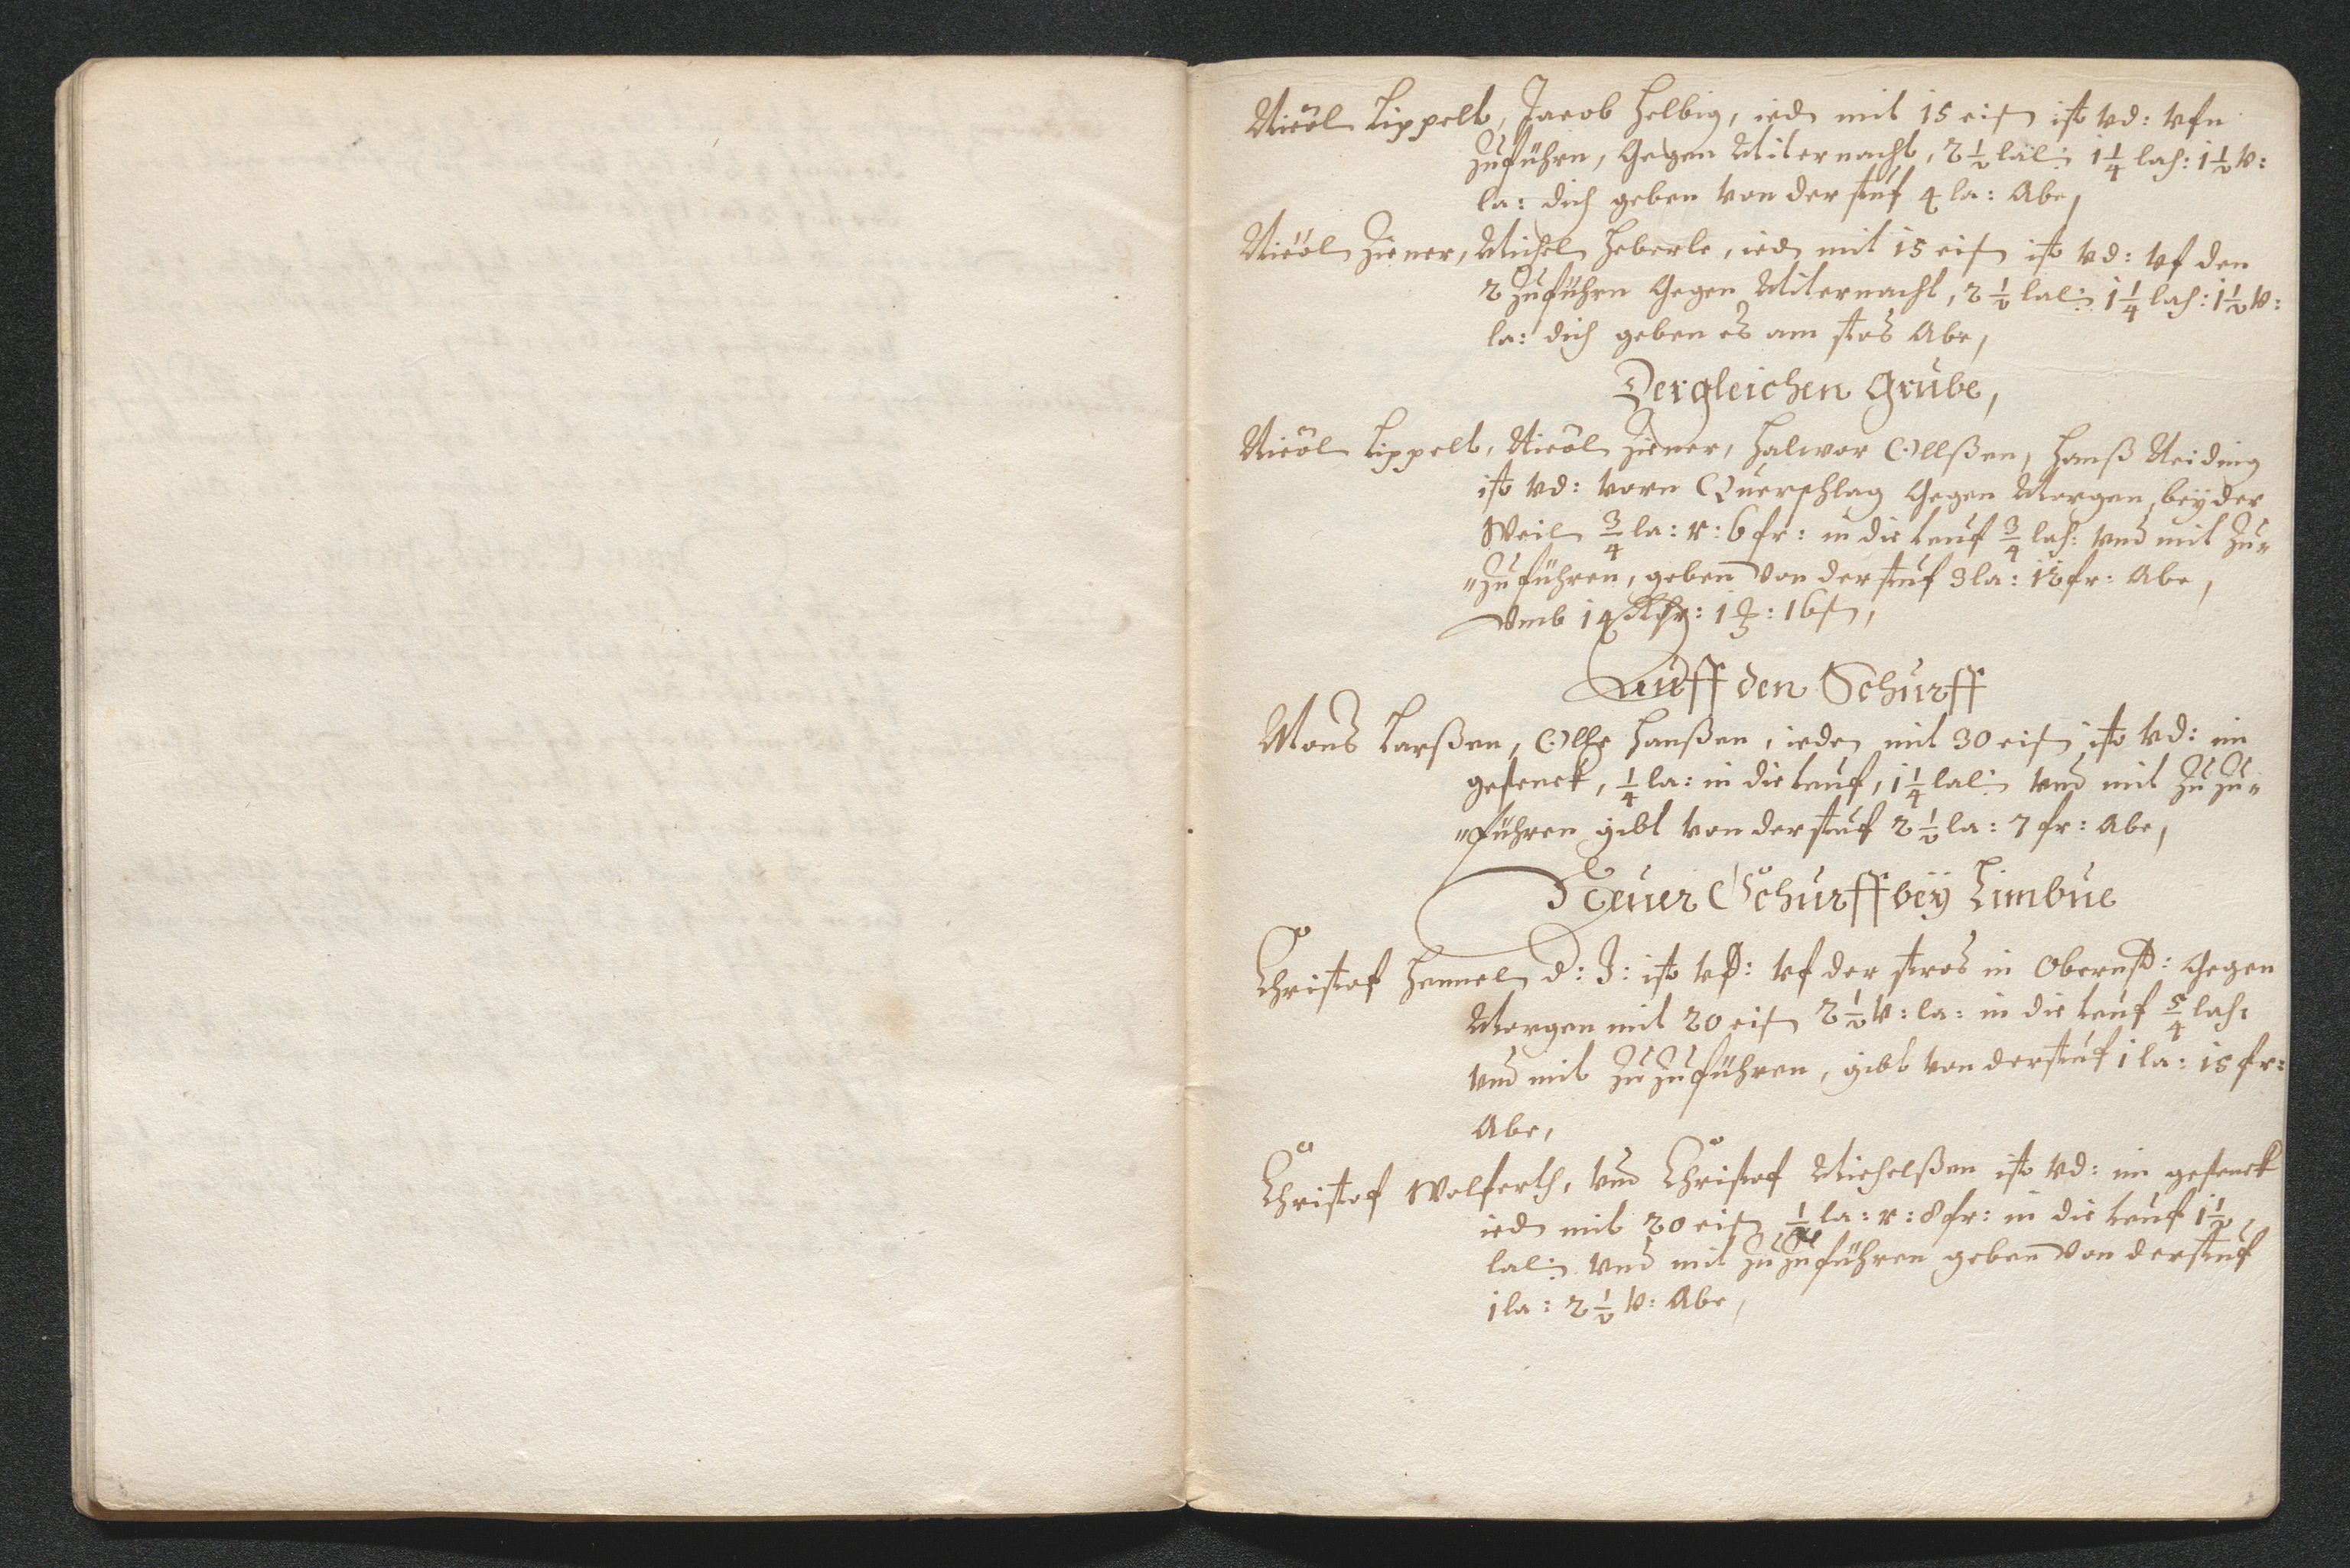 Nicol Lippelt, Jacob Helbig, ied mit 15 eis ist vd: vfn
Zuführn, Gegen Mitternacht, 2½ lal: 1¼ lach: 1½ v:
la: dich geben von der stuf 4 la: Abe,
Nicol Ziener, Michel Heberle, ied mit 15 eis ist vd: vf den
2 Zuführn Gegen Mitternacht, 2½ lal: 1¼ lach: 1½ v:
la: dich geben es am stos Abe,
Dergleichen Grube,
Nicol Lippelt, Nicol Ziener, Halvor Ollßen, Hanß Neiding
ist vd: vorn Querschlag Gegen Morgen, beÿder
Weil ¾ la: r: 6 fr: in die teuf ¾ lach: vnd mit Zu"
"zuführen, geben von der stuf 3 la: 12 fr: Abe,
Vmb 14 1 16
Auff den Schurff
Mons Larßen, Olle Hanßen, ieder mit 30 eis ist vd: im
gesenck, ¼ la: in die teuf, 1¼ lal: vnd mit Zu Zu"
"führen gibt von der stuf 2½ la: 7 fr: Abe,
Neuer Schurff beÿ Limbue
Christof Hennel d: J: ist vd: vf der stros in Obernst: Gegen
Morgen mit 20 eis 2½ v: la: in die teuf 5/4 lach:
vnd mit Zu Zuführen, gibt von der stuf 1 la: 15 fr:
Abe,
Christof Wolferth, vnd Christof Michelßen ist vd: im gesenck
ied mit 20 eis ½ la: r: 8 fr: in die teuf 1½
lal: vnd mit Zu Zuführen geben von der stuf
1 la: 2½ v: Abe,